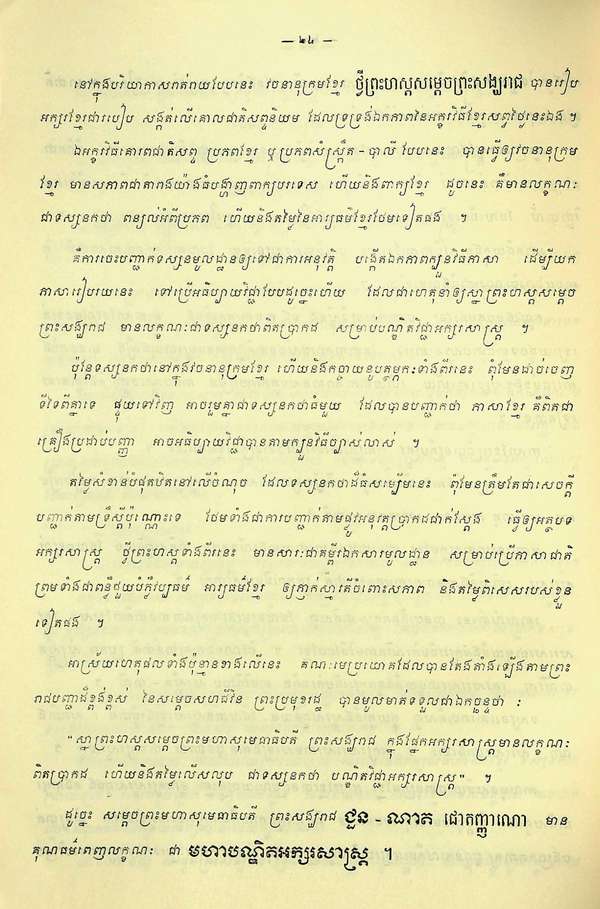 — ២៤ —
នៅក្នុងបរិយាកាសរាត់រាយបែបនេះ វចនានុក្រមខ្មែរ ថ្វីព្រះហស្តសម្តេចព្រះសង្ឃរាជ បានរៀប
អក្សរខ្មែរជារបៀប សង្កត់លើគោលជាតិសព្ទនិយម ដែលទ្រទ្រង់ឯកភាពនៃអក្ខរវិធីខ្មែរសព្វថ្ងៃនេះឯង ។
ឯអក្ខរវិធីគោរពជាតិសព្ទ ប្រភពខ្មែរ ឬប្រភពសំស្ក្រឹត - បាលី បែបនេះ បានធ្វើឲ្យវចនានុក្រម
ខ្មែរ មានសភាពជាតារាងយ៉ាងធំបង្ហាញពាក្យបរទេស ហើយនិងពាក្យខ្មែរ ដូចនេះ គឺមានលក្ខណៈ
ជាទស្សនកថា ពន្យល់អំពីប្រភព ហើយនិងតម្លៃនៃអារ្យធម៌ខ្មែរថែមទៀតផង ។
គឺការចេះបញ្ជាក់ទស្សនមូលដ្ឋានឲ្យទៅជាការអនុវត្តិ បង្កើតឯកភាពក្បួនវិធីភាសា ដើម្បីយក
ភាសារៀបរយនេះ ទៅប្រើអធិប្បាយវិជ្ជាបែបដូច្នេះហើយ ដែលជាហេតុនាំឲ្យស្នាព្រះហស្តសម្តេច
ព្រះសង្ឃរាជ មានលក្ខណៈជាទស្សនកថាពិតប្រាកដ សម្រាប់បណ្ឌិតវិជ្ជាអក្សរសាស្ត្រ ។
ប៉ុន្តែទស្សនកថានៅក្នុងវចនានុក្រមខ្មែរ ហើយនិងកច្ចាយនូបត្ថម្ភកៈទាំងពីរនេះ ពុំមែនដាច់ចេញ
ទីទៃពីគ្នាទេ ផ្ទុយទៅវិញ អាចរួមគ្នាជាទស្សនកថាធំមួយ ដែលបានបញ្ជាក់ថា ភាសាខ្មែរ គឺពិតជា
គ្រឿងប្រដាប់បញ្ញា អាចអធិប្បាយវិជ្ជាបានតាមក្បួនវិធីច្បាស់លាស់ ។
តម្លៃសំខាន់បំផុតឋិតនៅលើចំណុច ដែលទស្សនកថាដ៏ធំសម្បើមនេះ ពុំមែនត្រឹមតែជាសេចក្តី
បញ្ជាក់តាមទ្រឹស្តីប៉ុណ្ណោះទេ ថែមទាំងជាការបញ្ជាក់តាមផ្លូវអនុវត្តប្រាកដជាក់ស្តែង ធ្វើឲ្យអត្ថបទ
អក្សរសាស្ត្រ ថ្វីព្រះហស្តទាំងពីរនេះ មានសារៈជាគម្ពីរឯកសារមូលដ្ឋាន សម្រាប់ប្រើភាសាជាតិ
ព្រមទាំងជាពន្លឺជួយបំភ្លឺវប្បធម៌ អារ្យធម៌ខ្មែរ ឲ្យភ្ញាក់ស្មារតីចំពោះសភាព និងតម្លៃពិសេសរបស់ខ្លួន
ទៀតផង ។
អាស្រ័យហេតុផលទាំងប៉ុន្មានខាងលើនេះ គណៈមេប្រយោគដែលបានតែងតាំងឡើងតាមព្រះ
រាជបញ្ជាដ៏ខ្ពង់ខ្ពស់ នៃសម្តេចសហជីវិន ព្រះប្រមុខរដ្ឋ បានមូលមាត់ទទួលជាឯកច្ឆន្ទថា :
"ស្នាព្រះហស្តសម្តេចព្រះមហាសុមេធាធិបតី ព្រះសង្ឃរាជ ក្នុងផ្នែកអក្សរសាស្ត្រមានលក្ខណៈ
ពិតប្រាកដ ហើយនិងតម្លៃលើសលុប ជាទស្សនកថា បណ្ឌិតវិជ្ជាអក្សរសាស្ត្រ" ។
ដូច្នេះ សម្តេចព្រះមហាសុមេធាធិបតី ព្រះសង្ឃរាជ ជួន - ណាត ជោតញ្ញាណោ មាន
គុណធម៌ពេញលក្ខណៈ ជា មហាបណ្ឌិតអក្សរសាស្ត្រ ។